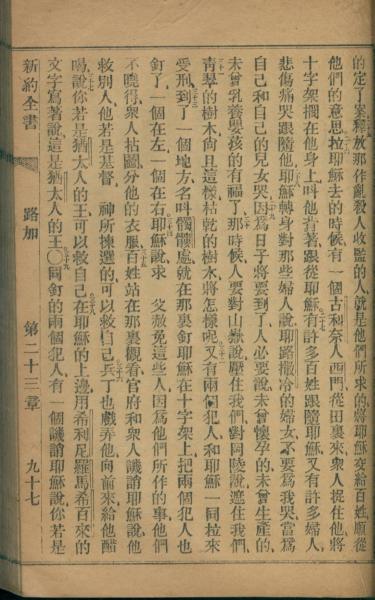 的定了案釋放那作亂殺人收監的人就是他們所求的將耶穌交給百姓順從
他們的意思拉耶穌去的時候有一個古利奈人西門從田裏來衆人捉住他將
十字架擱在他身上叫他背著跟從耶穌有許多百姓跟隨耶穌又有許多婦人
悲傷痛哭跟隨他耶穌轉身對那些婦人說耶路撒冷的婦女不要爲我哭當爲
自己和自己的兒女哭因爲日子將要到了人必要說未曾懷孕的未曾生產的
未曾乳養嬰孩的有福了那時候人要對山嶽說壓住我們對岡陵說遮住我們
青翠的樹木尙且這樣枯乾的樹木將怎樣呢又有兩個犯人和耶穌一同拉來
受刑到了一個地方名叫髑髏處就在那裏釘耶穌在十字架上把兩個犯人也
釘了一個在左一個在右耶穌說求 父赦免這些人因爲他們所作的事他們
不曉得衆人拈鬮分他的衣服百姓站在那裏觀看官府和衆人譏誚耶穌說他
救別人他若是基督 神所揀選的可以救自己兵丁也戲弄他向前來給他醋
喝說你若是猶太人的王可以救自己在耶穌的上邊用希利尼羅馬希百來的
文字寫著說這是猶太人的王〇同釘的兩個犯人有一個譏誚耶穌說你若是
新約全書 路加 第二十三章 九十七